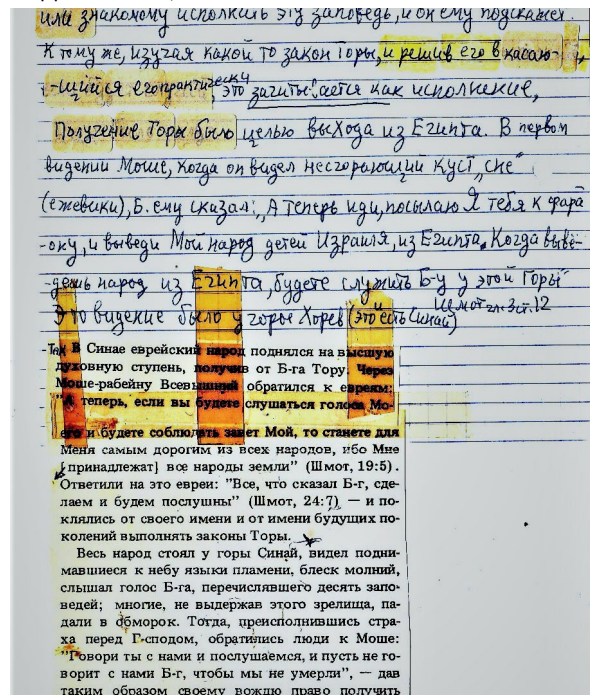 или знакомому исполнить эту заповедь, и он ему подскажет.
К тому же, изучая какой то закон Торы, и решив его в касаю-
-щийся его практически, это засчитывается как исполнение,
Получение Торы было целью выхода из Египта. В первом
видении Моше, когда он видел несгорающий куст „сне"
(ежевики), Б. ему сказал: „А теперь иди, посылаю Я тебя к фара
-ону, и выведи Мой народ детей Израиля, из Египта. Когда выве-
-дешь народ из Египта, будете служить Б-у у этой Горы"
Шмот гл. 3 ст. 12
Это видение было у горы Хорев (это есть Синай)
Так В Синае еврейский народ поднялся на высшую
духовную ступень, получив от Б-га Тору. Через
Моше-рабейну Всевышний обратился к евреям:
"А теперь, если вы будете слушаться голоса Мо-
его и будете соблюдать завет Мой, то станете для
Меня самым дорогим из всех народов, ибо Мне
[принадлежат] все народы земли" (Шмот, 19:5).
Ответили на это евреи: "Все, что сказал Б-г, сде-
лаем и будем послушны" (Шмот, 24:7) — и по-
клялись от своего имени и от имени будущих по-
колений выполнять законы Торы.
Весь народ стоял у горы Синай, видел подни-
мавшиеся к небу языки пламени, блеск молний,
слышал голос Б-га, перечислявшего десять запо-
ведей; многие, не выдержав этого зрелища, па-
дали в обморок. Тогда, преисполнившись стра-
ха перед Г-сподом, обратились люди к Моше:
"Говори ты с нами и послушаемся, и пусть не го-
ворит с нами Б-г, чтобы мы не умерли", — дав
таким образом своему вождю право получить